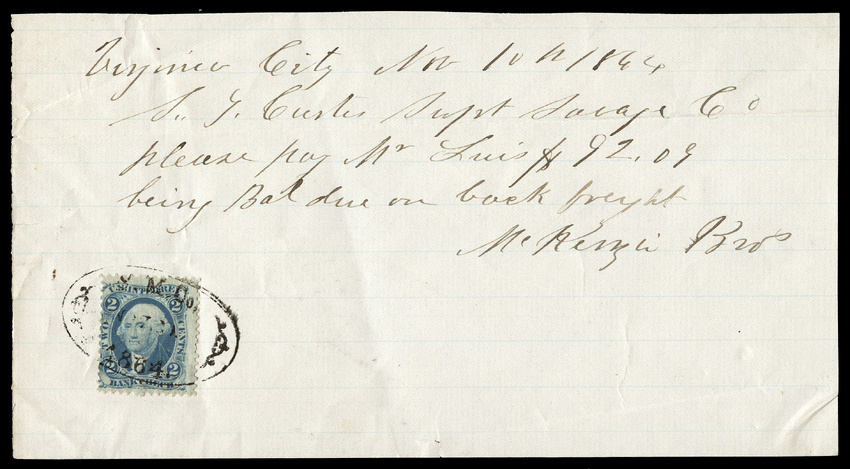 Virginia City Nov 10th 1864
S. T. Curtis Supt Savage Co
please pay Mr Luis $92.09
being Bal due on back freight
McKenzie Bros
S. M. Co.
U.S. INTER. REV.
2 2
TWO CENTS
1864
2 2
BANK CHECK